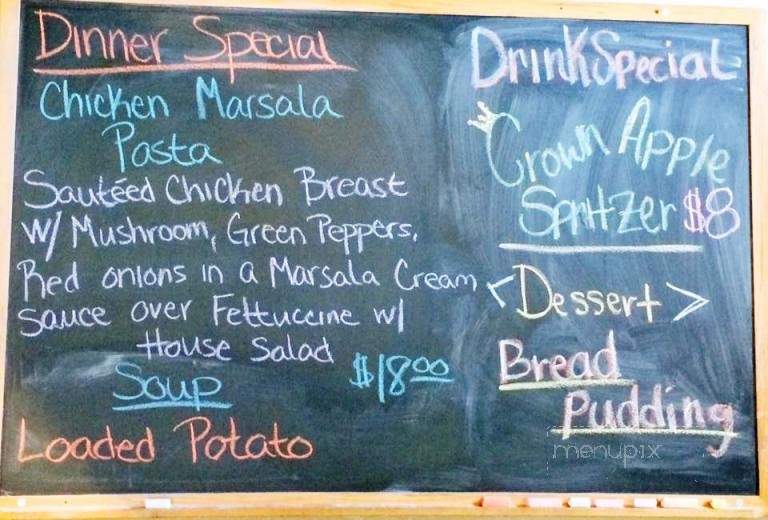 Dinner Special
Chicken Marsala
Pasta
Sautéed Chicken Breast
w/ Mushroom, Green Peppers,
Red onions in a Marsala Cream
sauce over Fettuccine w/
House Salad
$18.00
Soup
Loaded Potato
Drink Special
Crown Apple
Spritzer $8
< Dessert >
Bread
Pudding
menupix